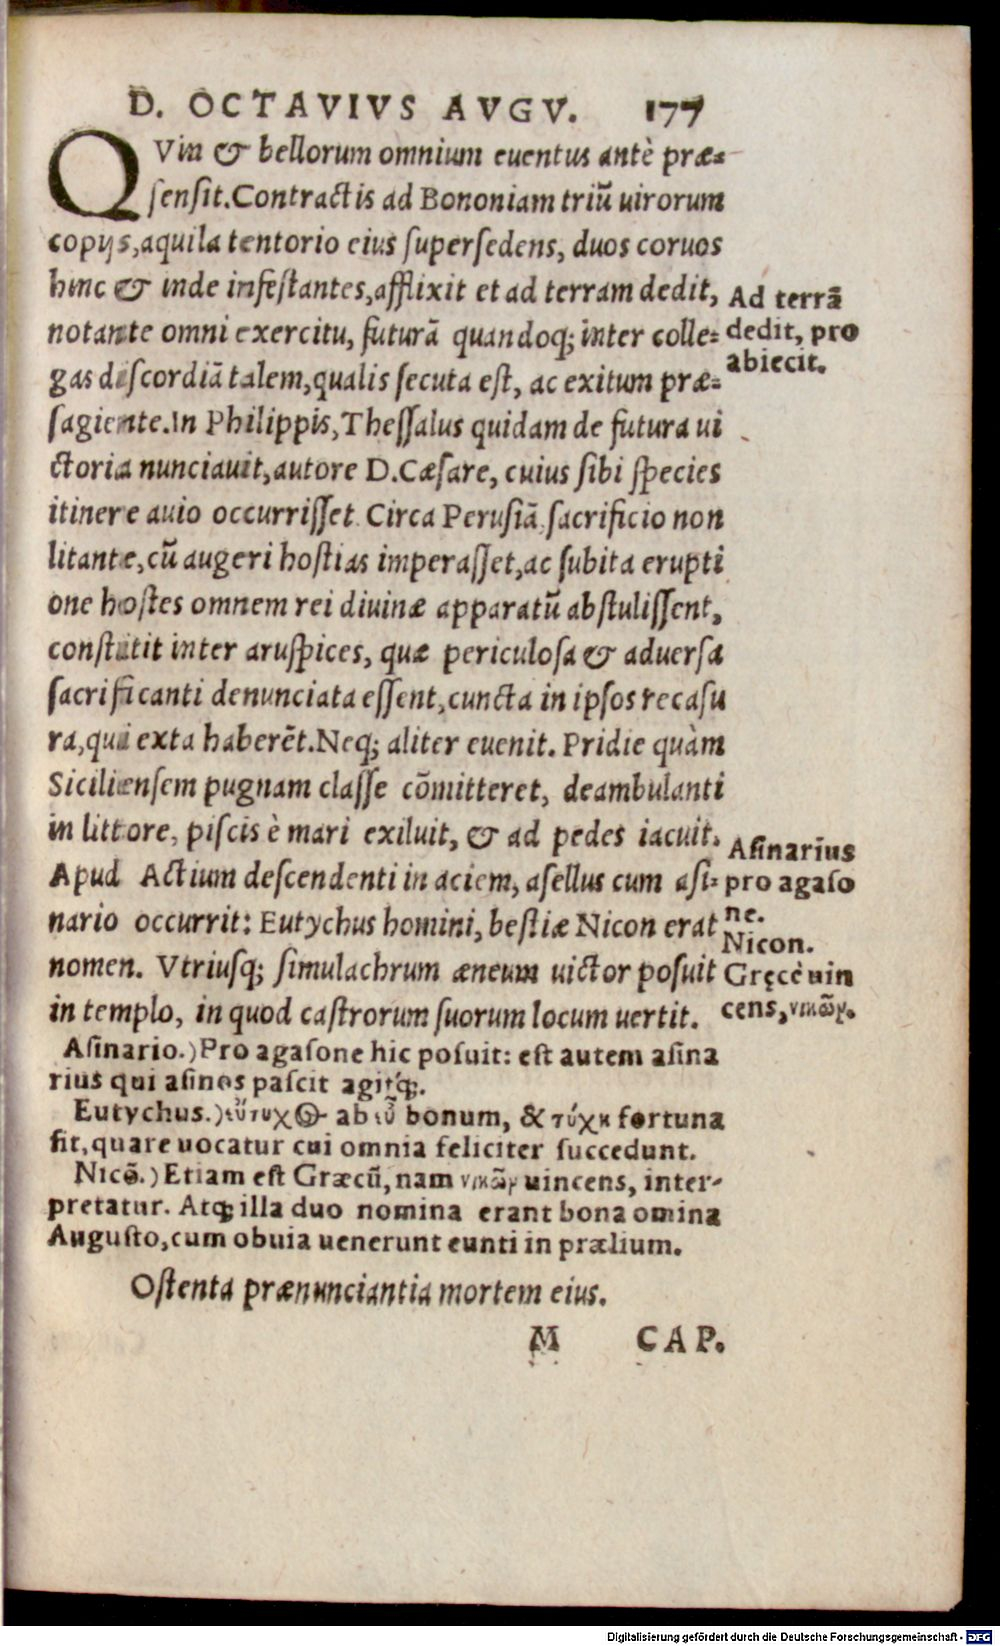 D. OCTAVIVS AVGV. 177
QVin & bellorum omnium euentus antè præ=
ſenſit. Contractis ad Bononiam triũ uirorum
copijs, aquila tentorio eius ſuperſedens, duos coruos
hinc & inde infeſtantes, afflixit et ad terram dedit,
notante omni exercitu, futurã quandoq; inter colle=
gas diſcordiã talem, qualis ſecuta eſt, ac exitum præ=
ſagiente. In Philippis, Theſſalus quidam de futura ui
ctoria nunciauit, autore D. Cæſare, cuius ſibi ſpecies
itinere auio occurriſſet. Circa Peruſiã, ſacrificio non
litante, cũ augeri hoſtias imperaſſet, ac ſubita erupti
one hoſtes omnem rei diuinæ apparatũ abſtuliſſent,
conſtitit inter aruſpices, quæ periculoſa & aduerſa
ſacrificanti denunciata eſſent, cuncta in ipſos recaſu
ra, qui exta haberẽt. Neq; aliter euenit. Pridie quàm
Sicilienſem pugnam claſſe cõmitteret, deambulanti
in littore, piſcis è mari exiluit, & ad pedes iacuit.
Apud Actium deſcendenti in aciem, aſellus cum aſi=
nario occurrit: Eutychus homini, beſtiæ Nicon erat
nomen. Vtriusq; ſimulachrum æneum uictor poſuit
in templo, in quod caſtrorum ſuorum locum uertit.
Ad terrã
dedit, pro
abiecit.
Aſinarius
pro agaſo
ne.
Nicon.
Gręcè uin
cens, νικῶν.
Aſinario.) Pro agaſone hic poſuit: eſt autem aſina
rius qui aſinos paſcit agitq́;.
Eutychus.) εὔτυχος ab εὖ bonum, & τύχη fortuna
fit, quare uocatur cui omnia feliciter ſuccedunt.
Nicõ.) Etiam eſt Græcũ, nam νικῶν uincens, inter-
pretatur. Atq; illa duo nomina erant bona omina
Auguſto, cum obuia uenerunt eunti in prælium.
Oſtenta prænunciantia mortem eius.
M CAP.
Digitalisierung gefördert durch die Deutsche Forschungsgemeinschaft - DFG